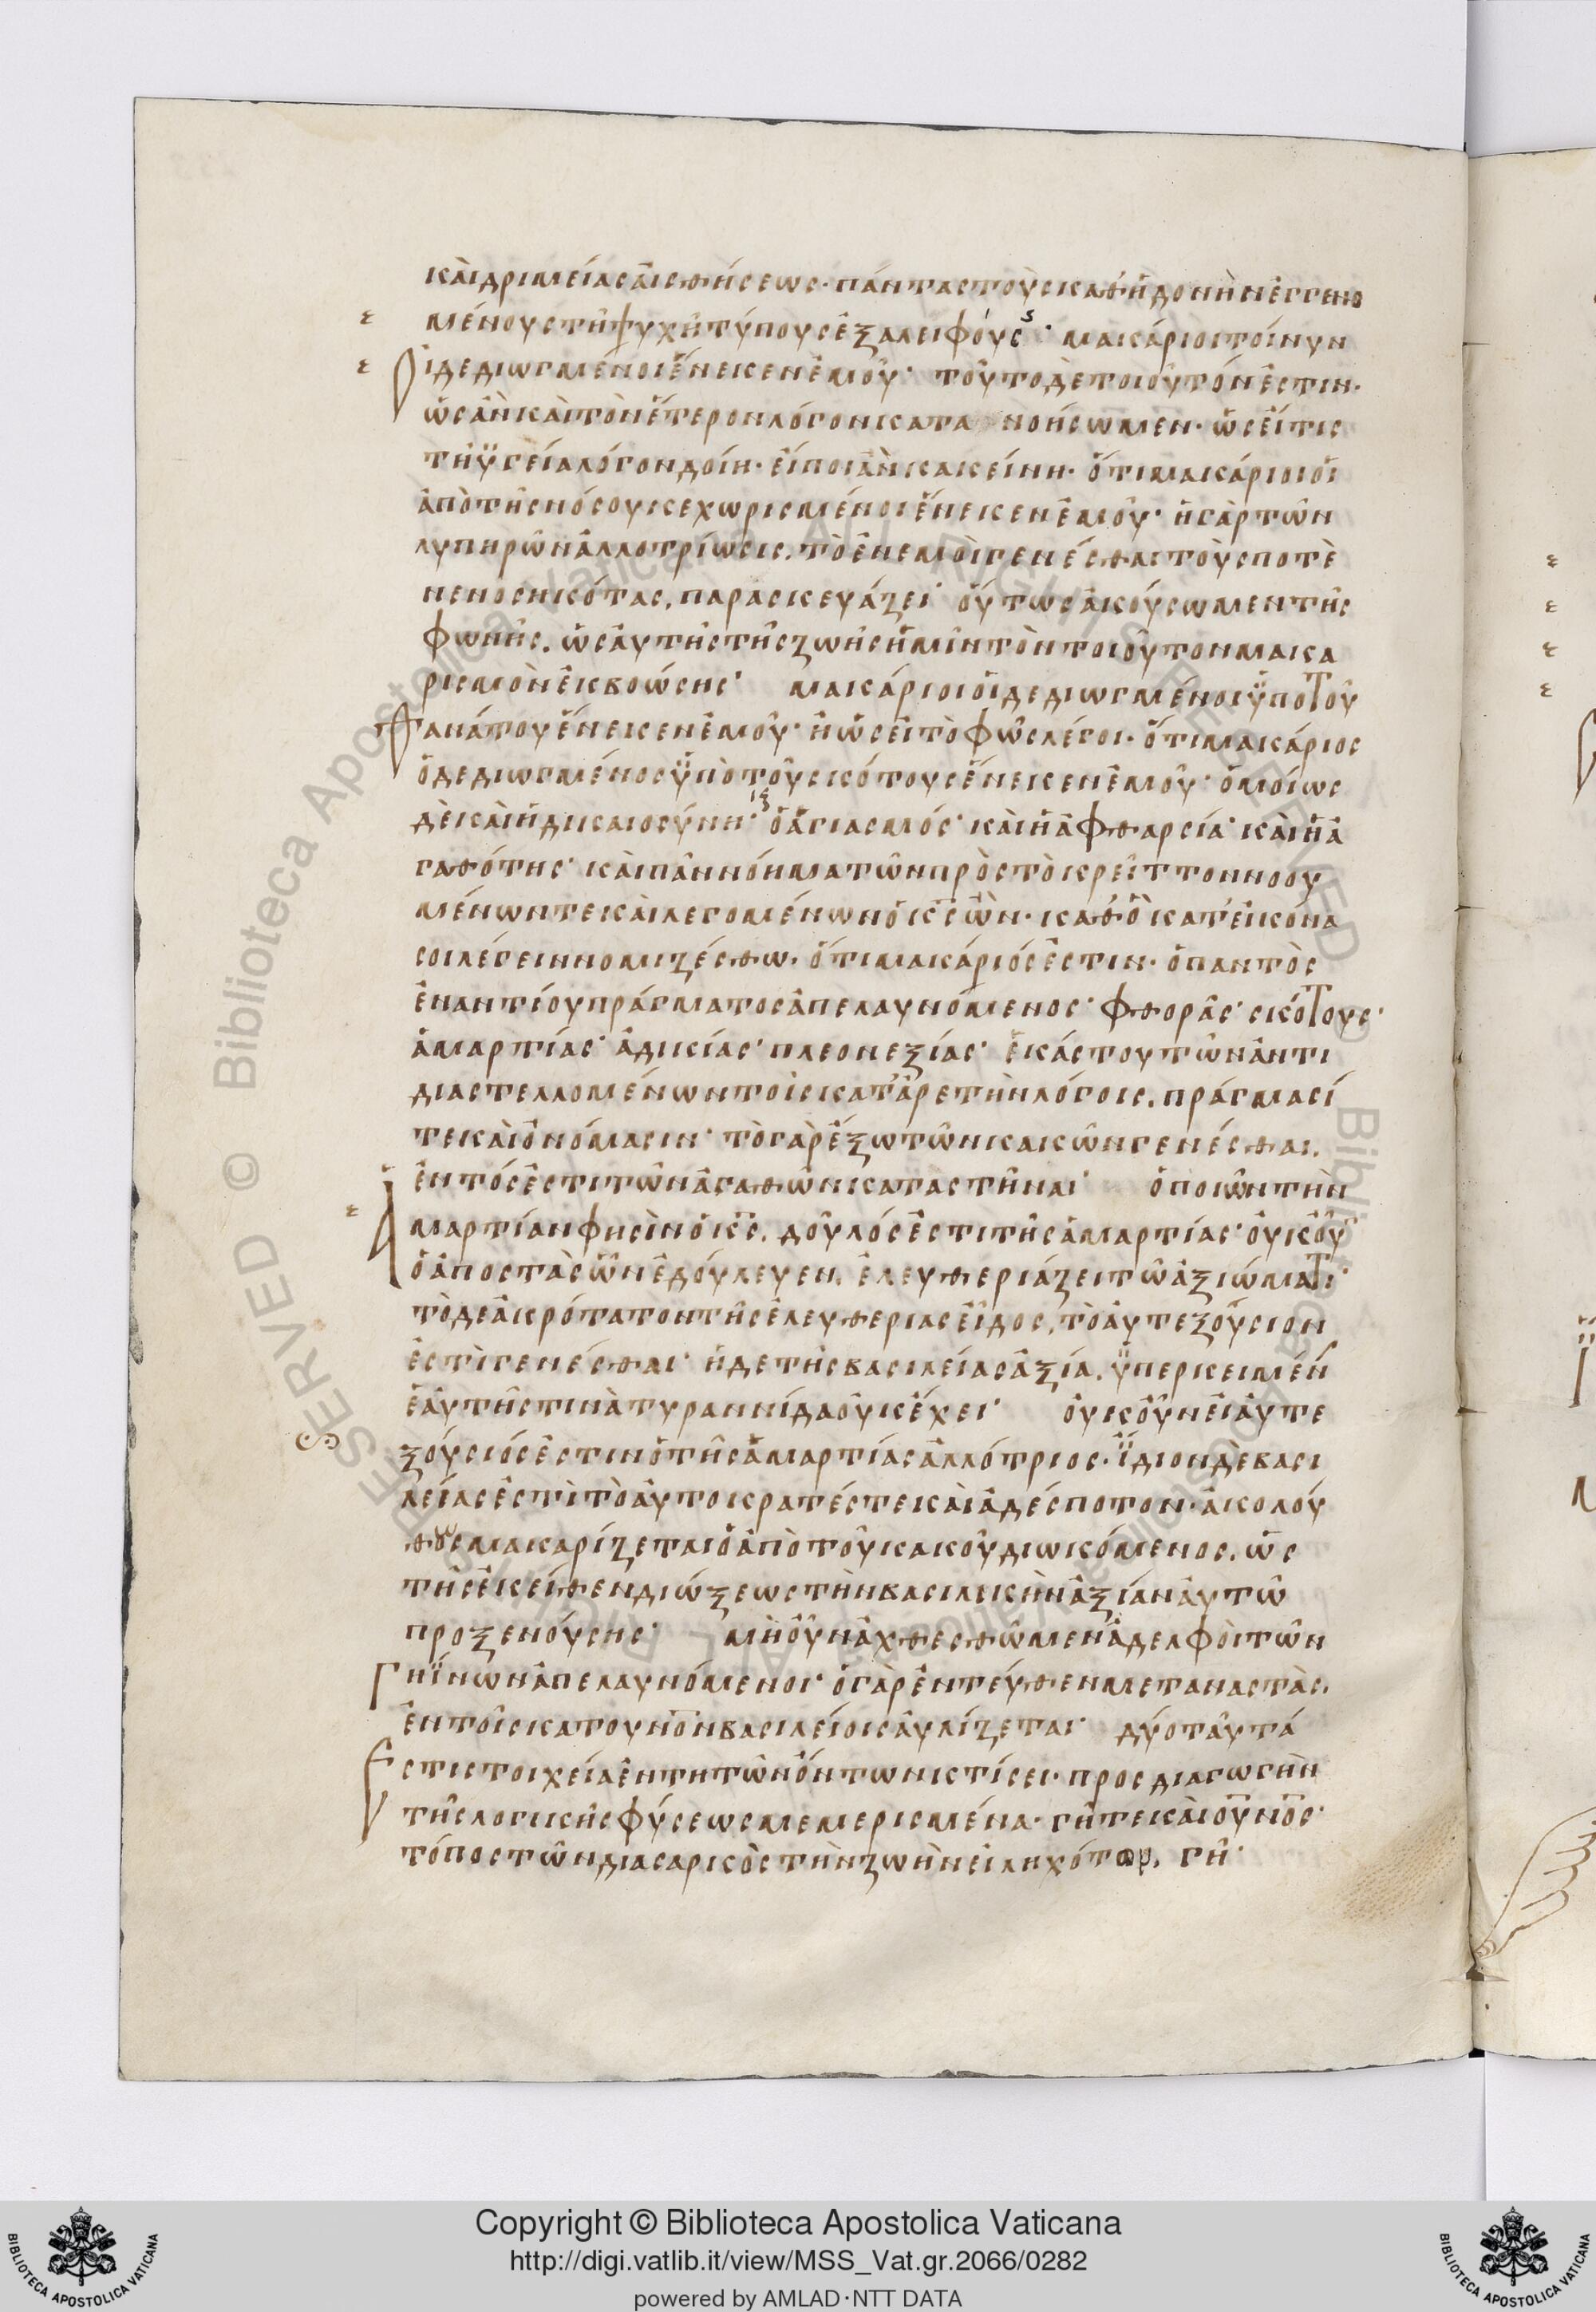 καὶ δριμείας αἰσθήσεως· πάντας τοὺς καθ' ἡδονὴν ἐγγενο
μένους τῇ ψυχῇ τύπους ἐξαλειφούσης· μακάριοι τοίνυν
οἱ δεδιωγμένοι ἕνεκεν ἐμοῦ· τοῦτο δὲ τοιοῦτόν ἐστιν·
ὡς ἂν καὶ τὸν ἕτερον λόγον κατανοήσωμεν· ὡς εἴ τις
τῇ ὑγείᾳ λόγον δοίη· εἴποι ἂν κακείνη· ὅτι μακάριοι οἱ
ἀπὸ τῆς νόσου κεχωρισμένοι ἕνεκεν ἐμοῦ· ἡ γὰρ τῶν
λυπηρῶν ἀλλοτρίωσις, τὸ ἐν ἐμοὶ γενέσθαι τοὺς ποτὲ
νενοσηκότας, παρασκευάζει· οὕτως ἀκούσωμεν τῆς
φωνῆς, ὡς αὐτῆς τῆς ζωῆς ἡμῖν τὸν τοιοῦτον μακα
ρισμὸν ἐκβοώσης· μακάριοι οἱ δεδιωγμένοι ὑπὸ τοῦ
θανάτου ἕνεκεν ἐμοῦ· ἢ ὡς εἰ τὸ φῶς λέγοι· ὅτι μακάριος
ὁ δεδιωγμένος ὑπὸ τοῦ σκότους ἕνεκεν ἐμοῦ· ὁμοίως
δὲ καὶ ἡ δικαιοσύνη· κ, ὁ ἁγιασμός· καὶ ἡ ἀφθαρσία· καὶ ἡ ἀ
γαθότης· καὶ πᾶν νόημα τῶν πρὸς τὸ κρεῖττον νοου
μένων τε καὶ λεγομένων ὁ κς ὤν· καθ' ὃ κατ' εἰκόνα
σοι λέγειν νομιζέσθω, ὅτι μακάριός ἐστιν· ὁ παντὸς
ἐναντίου πράγματος ἀπελαυνόμενος· φθορᾶς· σκότους·
ἁμαρτίας· ἀδικίας· πλεονεξίας· ἑκάστου τῶν ἀντι
διαστελλομένων τοῖς κατ' ἀρετὴν λόγοις, πράγμασί
τε καὶ ὀνόμασιν· τὸ γὰρ ἔξω τῶν κακῶν γενέσθαι,
ἐντός ἐστι τῶν ἀγαθῶν καταστῆναι· ὁ ποιῶν τὴν
ἁμαρτίαν φησὶν ὁ κς, δοῦλός ἐστι τῆς ἁμαρτίας· οὐκοῦν
ὁ ἀποστὰς ὧν ἐδούλευεν, ἐλευθεριάζει τῷ ἀξιώματι·
τὸ δὲ ἀκρότατον τῆς ἐλευθερίας εἶδος, τὸ αὐτεξούσιον
ἐστὶ γενέσθαι· ἡ δὲ τῆς βασιλείας ἀξία, ὑπερκειμένην
ἑαυτῆς τινὰ τυραννίδα οὐκ ἔχει· οὐκοῦν εἰ αὐτε
ξούσιός ἐστιν ὁ τῆς ἁμαρτίας ἀλλότριος· ἴδιον δὲ βασι
λείας ἐστὶ τὸ αὐτοκρατές τε καὶ ἀδέσποτον· ἀκολού
θως μακαρίζεται ὁ ἀπὸ τοῦ κακοῦ διωκόμενος, ὡς
τῆς ἐκεῖθεν διώξεως τὴν βασιλικὴν ἀξίαν αὐτῷ
προξενούσης· μὴ οὖν ἀχθεσθῶμεν ἀδελφοὶ τῶν
γηΐνων ἀπελαυνόμενοι· ὁ γὰρ ἐντεῦθεν μεταναστὰς,
ἐν τοῖς κατ' οὐνὸν βασιλείοις αὐλίζεται· δύο ταῦτά
ἐστι στοιχεία ἐν τῇ τῶν ὄντων κτίσει· πρὸς διαγωγὴν
τῆς λογικῆς φύσεως μεμερισμένα· γῆ τε καὶ οὐνός·
τόπος τῶν διὰ σαρκὸς τὴν ζωὴν εἰληχότων, γῆ·
Copyright © Biblioteca Apostolica Vaticana
http://digi.vatlib.it/view/MSS_Vat.gr.2066/0282
powered by AMLAD·NTT DATA
BIBLIOTECA APOSTOLICA VATICANA
BIBLIOTECA APOSTOLICA VATICANA